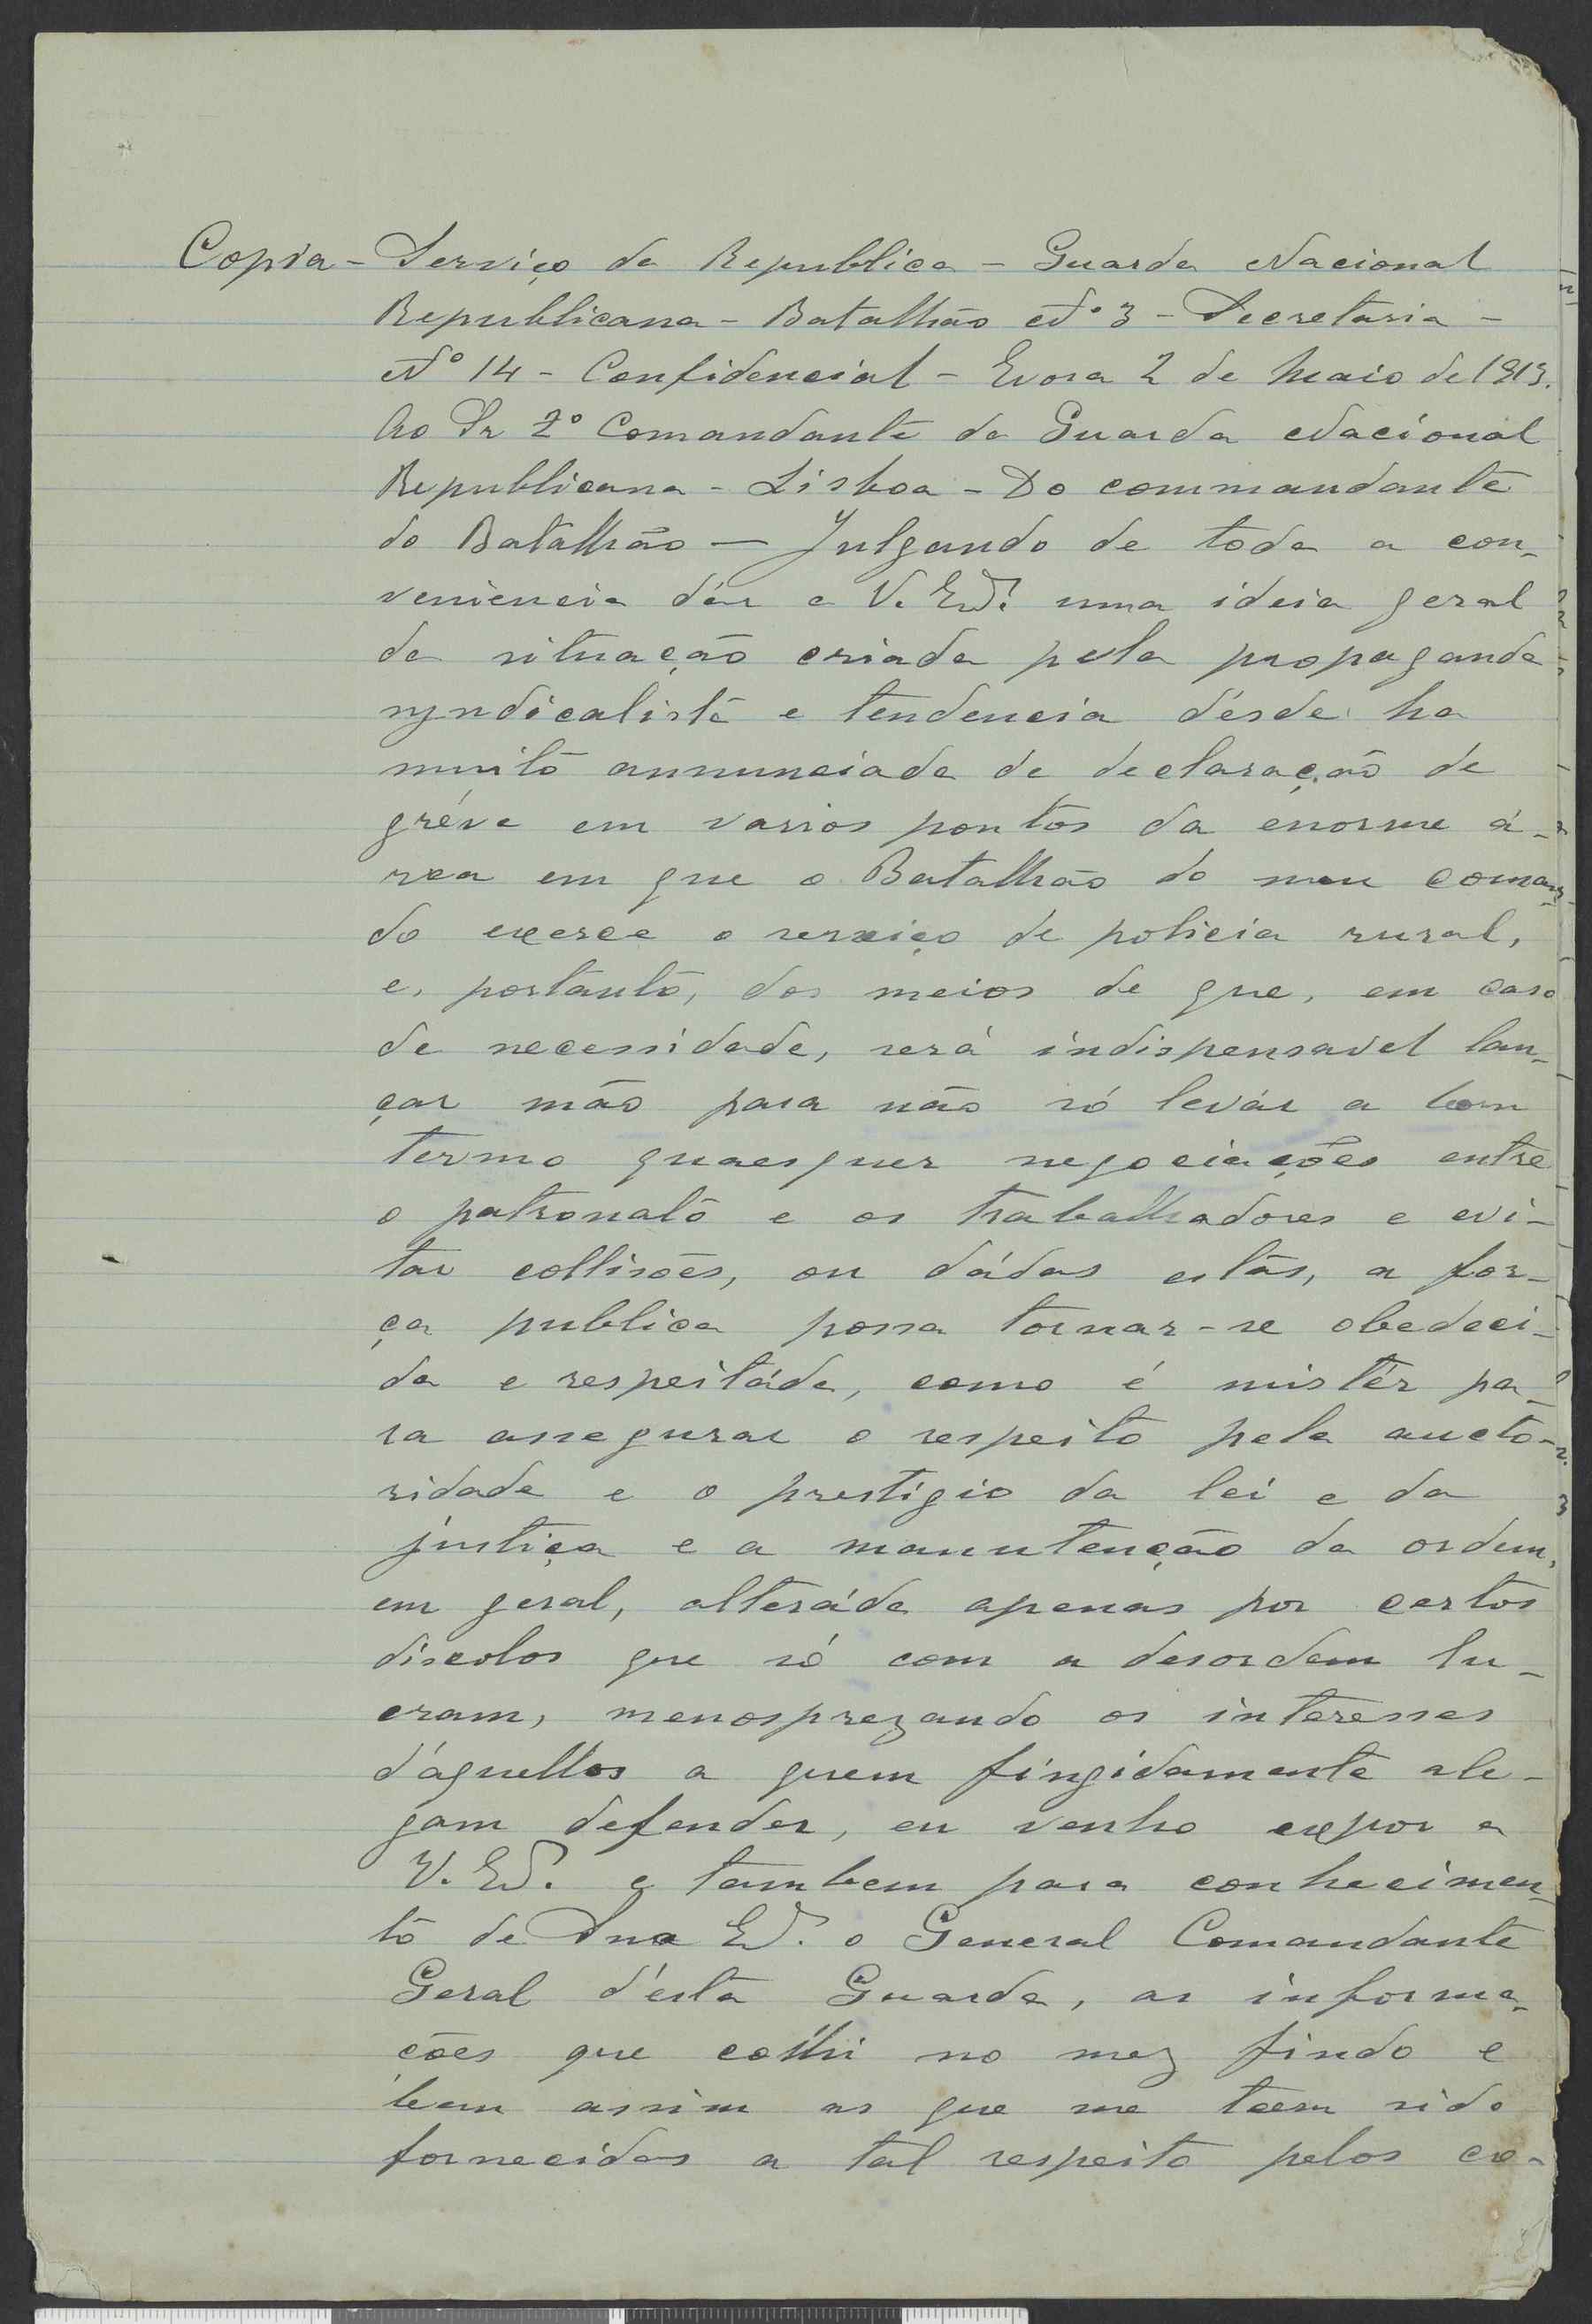 Copia - Serviço da Republica - Guarda Nacional
Republicana - Batalhão Nº 3 - Secretaria -
Nº 14 - Confidencial - Evora 2 de Maio de 1913.
Ao Sr 2º Comandante da Guarda Nacional
Republicana - Lisboa - Do commandante
do Batalhão — Julgando de toda a con-
veniencia dár a V. Exª uma ideia geral
da situação criada pela propaganda
syndicalista e tendencia désde ha
muito annunciada de declaração de
gréve em varios pontos da enorme á-
rea em que o Batalhão do meu coman-
do exerce o serviço de policia rural,
e, portanto, dos meios de que, em caso
de necessidade, será indispensavel lan-
çar mão para não só levár a bom
termo quaesquer negociações entre
o patronato e os trabalhadores e evi-
tar collisões, ou dádas estas, a for-
ça publica possa tornar-se obedeci-
da e respeitáda, como é mistér pa-
ra assegurar o respeito pela aucto-
ridade e o prestigio da lei e da
justiça e a manutenção da ordem,
em geral, alteráda apenas por certos
discolos que só com a desordem lu-
cram, menosprezando os interesses
d'aquellos a quem fingidamente ale-
gam defender, eu venho expor a
V. Exª. e tambem para conhecimen-
to de Sua Exª. o General Comandante
Geral d'ésta Guarda, as informa-
ções que colhi no mez findo e
bem assim as que me teem sido
fornecidas a tal respeito pelos co-